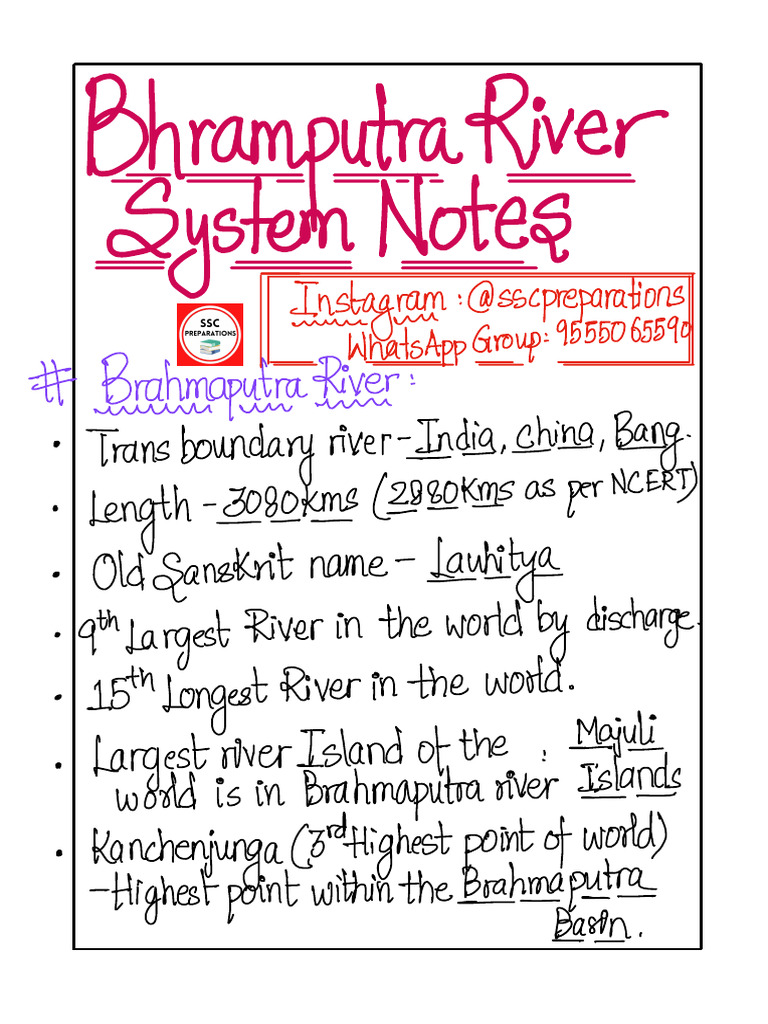 Bhramputra River
System Notes
SSC
PREPARATIONS
Instagram : @sscpreparations
WhatsApp Group: 9555065590
# Brahmaputra River :
• Trans boundary river - India, China, Bang.
• Length - 3080kms (2880kms as per NCERT)
• Old Sanskrit name - Lauhitya
• 9th Largest River in the world by discharge.
• 15th Longest River in the world.
• Largest river Island of the : Majuli
world is in Brahmaputra river Islands
• Kanchenjunga (3rd Highest point of world)
- Highest point within the Brahmaputra
Basin.